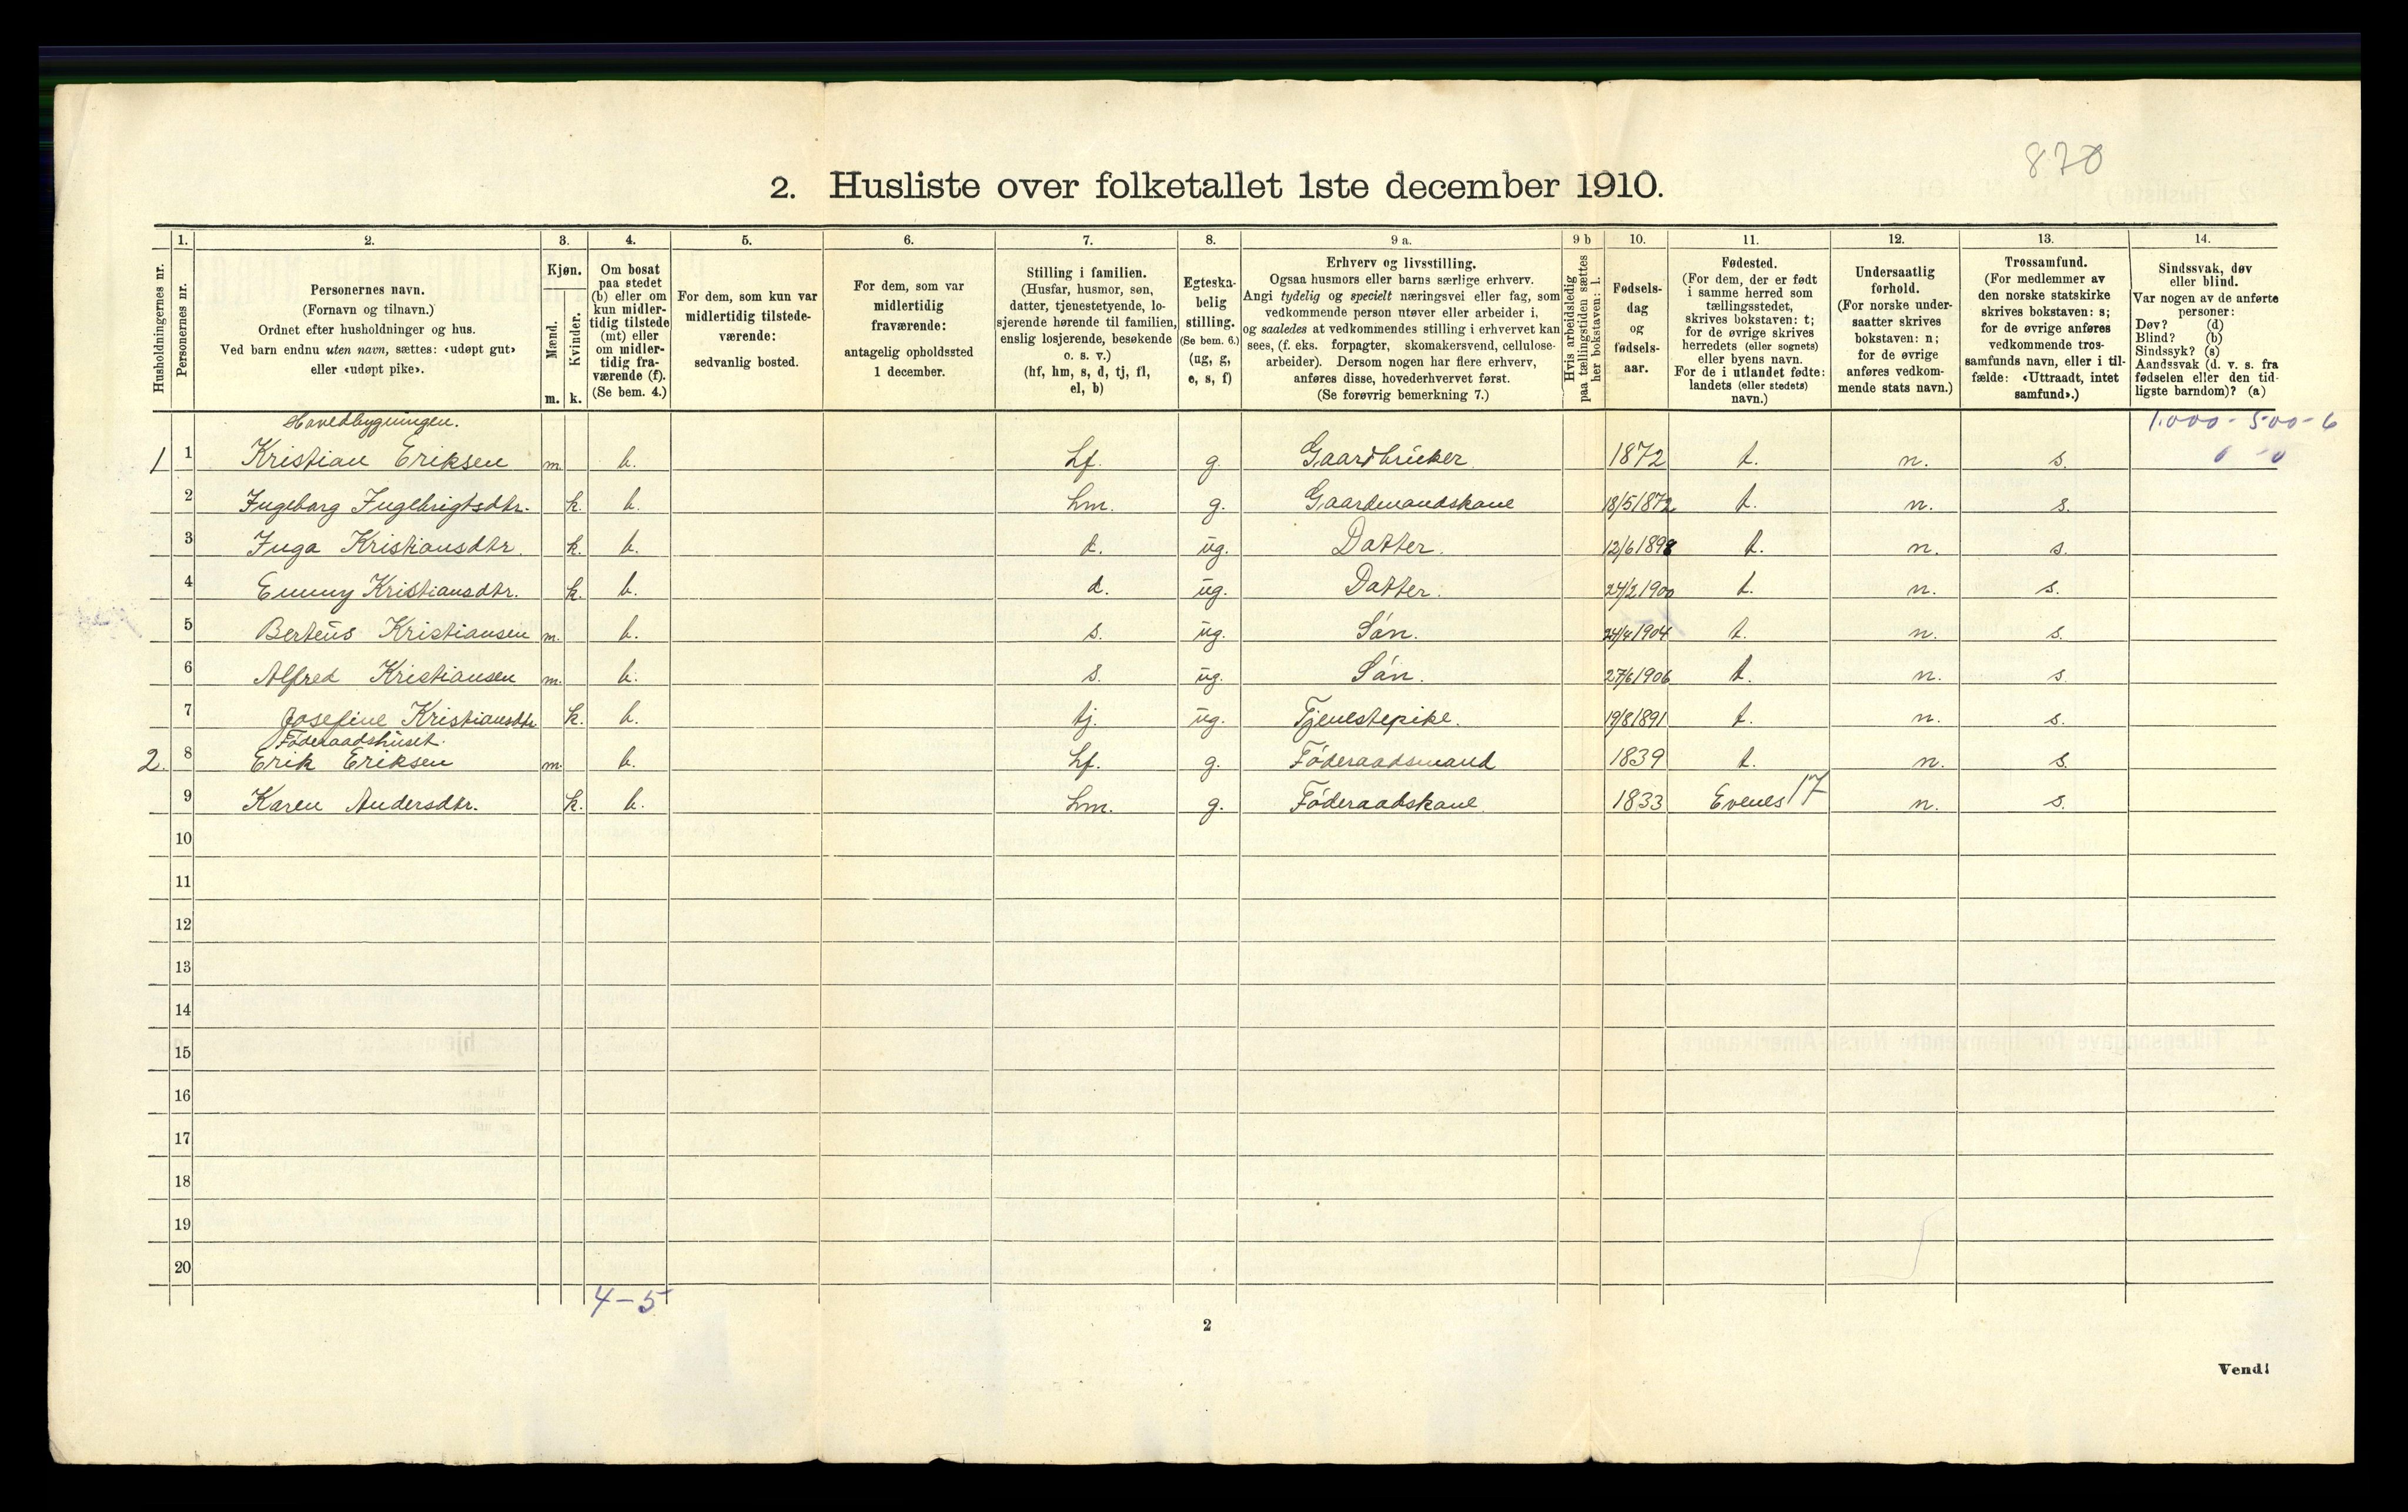 870
2. Husliste over folketallet 1ste december 1910.
Husholdningernes nr.
1.
Personernes nr.
2.
Personernes navn.
(Fornavn og tilnavn.)
Ordnet efter husholdninger og hus.
Ved barn endnu uten navn, sættes: «udøpt gut»
eller «udøpt pike».
3.
Kjøn.
Mænd.
Kvinder.
m. k.
4.
Om bosat
paa stedet
(b) eller om
kun midler-
tidig tilstede
(mt) eller
om midler-
tidig fra-
værende (f).
(Se bem. 4.)
5.
For dem, som kun var
midlertidig tilstede-
værende:
sedvanlig bosted.
6.
For dem, som var
midlertidig
fraværende:
antagelig opholdssted
1 december.
7.
Stilling i familien.
(Husfar, husmor, søn,
datter, tjenestetyende, lo-
sjerende hørende til familien,
enslig losjerende, besøkende
o. s. v.)
(hf, hm, s, d, tj, fl,
el, b)
8.
Egteska-
belig
stilling.
(Se bem. 6.)
(ug, g,
e, s, f)
9 a.
Erhverv og livsstilling.
Ogsaa husmors eller barns særlige erhverv.
Angi tydelig og specielt næringsvei eller fag, som
vedkommende person utøver eller arbeider i,
og saaledes at vedkommendes stilling i erhvervet kan
sees, (f. eks. forpagter, skomakersvend, cellulose-
arbeider). Dersom nogen har flere erhverv,
anføres disse, hovederhvervet først.
(Se forøvrig bemerkning 7.)
9 b
Hvis arbeidsledig
paa tællingstiden sættes
her bokstaven: l.
10.
Fødsels-
dag
og
fødsels-
aar.
11.
Fødested.
(For dem, der er født
i samme herred som
tællingsstedet,
skrives bokstaven: t;
for de øvrige skrives
herredets (eller sognets)
eller byens navn.
For de i utlandet fødte:
landets (eller stedets)
navn.)
12.
Undersaatlig
forhold.
(For norske under-
saatter skrives
bokstaven: n;
for de øvrige
anføres vedkom-
mende stats navn.)
13.
Trossamfund.
(For medlemmer av
den norske statskirke
skrives bokstaven: s;
for de øvrige anføres
vedkommende tros-
samfunds navn, eller i til-
fælde: «Uttraadt, intet
samfund».)
14.
Sindssvak, døv
eller blind.
Var nogen av de anførte
personer:
Døv? (d)
Blind? (b)
Sindssyk? (s)
Aandssvak (d. v. s. fra
fødselen eller den tid-
ligste barndom)? (a)
Hovedbygningen.
1.000 - 500 - 6
0 - 0
1 1 Kristian Eriksen m. b. hf. g. Gaardbruker 1872 t. n. s.
2 Ingeborg Ingebrigtsdtr. k. b. hm. g. Gaardmandskone 18/5 1872 t. n. s.
3 Inga Kristiansdtr. k. b. d. ug. Datter. 12/6 1898 t. n. s.
4 Emmy Kristiansdtr. k. b. d. ug. Datter. 24/2 1900 t. n. s.
5 Berteus Kristiansen m. b. s. ug. Søn. 24/4 1904 t. n. s.
6 Alfred Kristiansen m. b. s. ug. Søn. 27/6 1906 t. n. s.
7 Josefine Kristiansdtr. k. b. tj. ug. Tjenestepike. 19/8 1891 t. n. s.
Føderaadshuset.
2. 8 Erik Eriksen m. b. hf. g. Føderaadsmand 1839 t. n. s.
9 Karen Andersdtr. k. b. hm. g. Føderaadskone 1833 Evenes 17 n. s.
10
11
12
13
14
15
16
17
18
19
20
4 - 5
2
Vend!